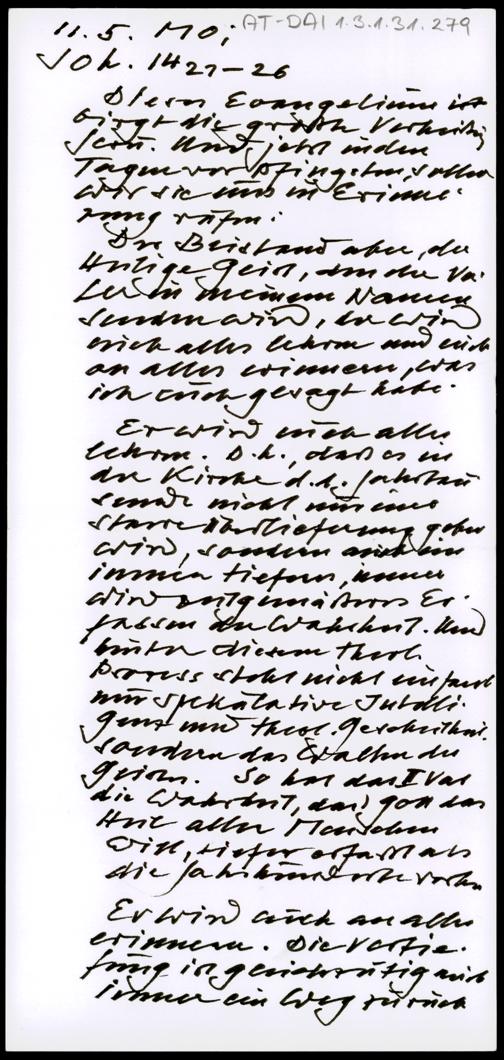 AT-DAI 1.3.1.31.279
11.5. Mo;
Joh. 14 21-26
Dieses Evangelium ist
birgt die größte Verheißung
Jesu. Und jetzt in den
Tagen vor Pfingsten, sollen
wir sie uns in Erinne-
rung rufen:
Der Beistand aber, der
Heilige Geist, den der Va-
ter in meinem Namen
senden wird, der wird
euch alles lehren und euch
an alles erinnern, was
ich euch gesagt habe.
Er wird euch alles
lehren. D.h., daß es in
der Kirche d.d. Jahrtau
sende nicht nur eine
starre Überlieferung geben
wird, sondern auch ein
immer tieferes, immer
wird zeitgemäßeres Er-
fassen der Wahrheit. Und
hinter diesem theol.
Prozess steht nicht einfach
nur spekulative Intelli-
genz und theol. Gescheitheit,
sondern das Walten des
Geistes. So hat das II Vat
die Wahrheit, daß Gott das
Heil aller Menschen
will, tiefer erfaßt als
die Jahrhunderte vorher.
Er wird euch an alles
erinnern. Die Vertie-
fung ist gleichzeitig auch
immer ein Weg zurück